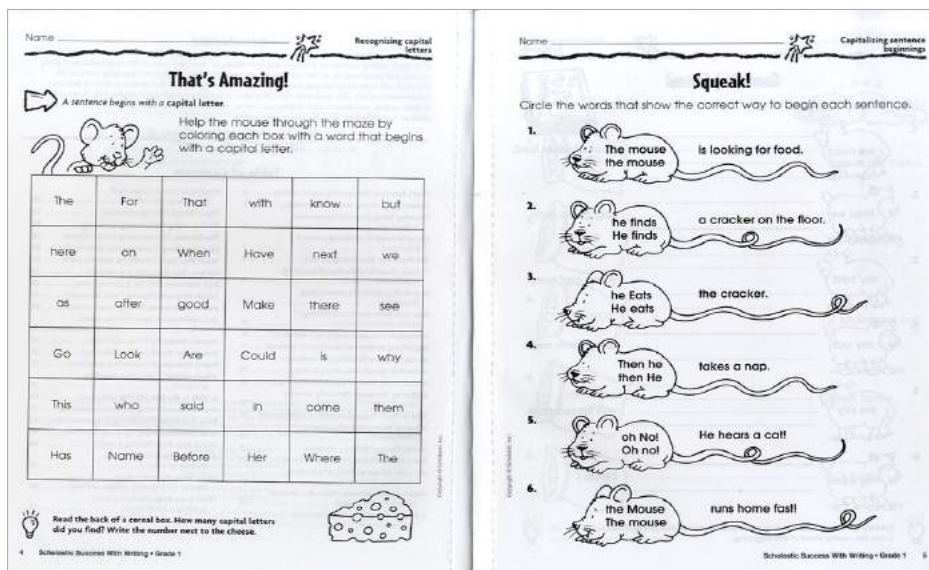 Name
Recognizing capital
letters
That's Amazing!
A sentence begins with a capital letter.
Help the mouse through the maze by
coloring each box with a word that begins
with a capital letter.
The For That with know but
here on When Have next we
as after good Make there see
Go Look Are Could is why
This who said in come them
Has Name Before Her Where The
Read the back of a cereal box. How many capital letters
did you find? Write the number next to the cheese.
4 Scholastic Success With Writing • Grade 1
Name
Capitalizing sentence
beginnings
Squeak!
Circle the words that show the correct way to begin each sentence.
1.
The mouse
the mouse
is looking for food.
2.
he finds
He finds
a cracker on the floor.
3.
he Eats
He eats
the cracker.
4.
Then he
then He
takes a nap.
5.
oh No!
Oh no!
He hears a cat!
6.
the Mouse
The mouse
runs home fast!
Scholastic Success With Writing • Grade 1 5